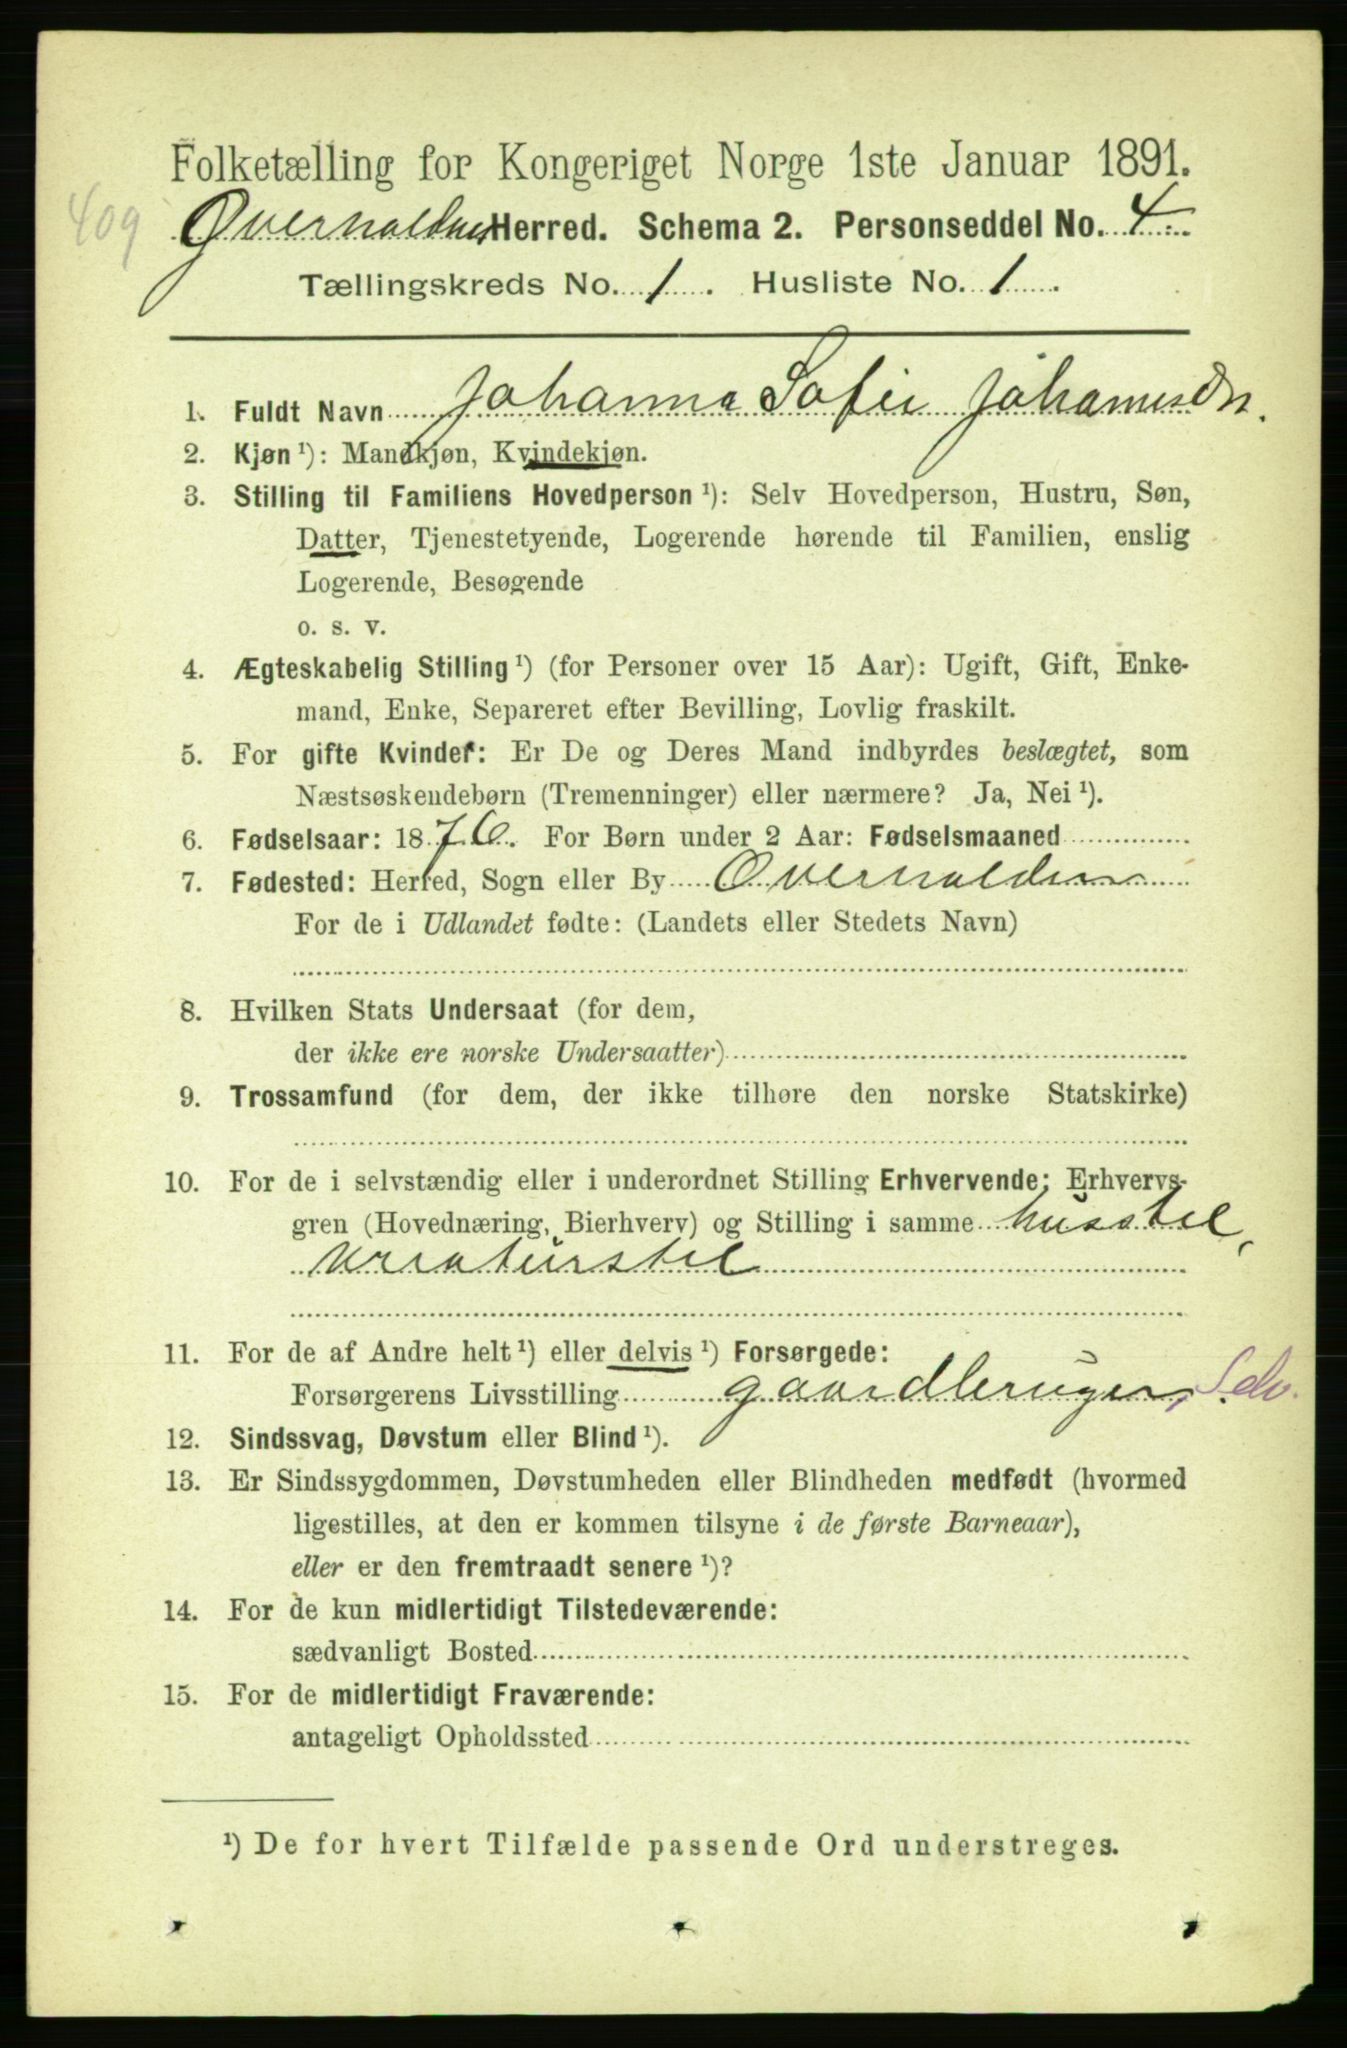 Folketælling for Kongeriget Norge 1ste Januar 1891.
409
Overhalden Herred. Schema 2. Personseddel No. 4
Tællingskreds No. 1. Husliste No. 1.
1. Fuldt Navn Johanna Sofie Johannesdr.
2. Kjøn ¹): Mandkjøn, Kvindekjøn.
3. Stilling til Familiens Hovedperson ¹): Selv Hovedperson, Hustru, Søn,
Datter, Tjenestetyende, Logerende hørende til Familien, enslig
Logerende, Besøgende
o. s. v.
4. Ægteskabelig Stilling ¹) (for Personer over 15 Aar): Ugift, Gift, Enke-
mand, Enke, Separeret efter Bevilling, Lovlig fraskilt.
5. For gifte Kvinder: Er De og Deres Mand indbyrdes beslægtet, som
Næstsøskendebørn (Tremenninger) eller nærmere? Ja, Nei ¹).
6. Fødselsaar: 1876. For Børn under 2 Aar: Fødselsmaaned
7. Fødested: Herred, Sogn eller By Overhalden
For de i Udlandet fødte: (Landets eller Stedets Navn)
8. Hvilken Stats Undersaat (for dem,
der ikke ere norske Undersaatter)
9. Trossamfund (for dem, der ikke tilhøre den norske Statskirke)
10. For de i selvstændig eller i underordnet Stilling Erhvervende: Erhvervs-
gren (Hovednæring, Bierhverv) og Stilling i samme husstel,
kreaturstel
11. For de af Andre helt ¹) eller delvis ¹) Forsørgede:
Forsørgerens Livsstilling gaardbruger, Selv.
12. Sindssvag, Døvstum eller Blind ¹).
13. Er Sindssygdommen, Døvstumheden eller Blindheden medfødt (hvormed
ligestilles, at den er kommen tilsyne i de første Barneaar),
eller er den fremtraadt senere ¹)?
14. For de kun midlertidigt Tilstedeværende:
sædvanligt Bosted
15. For de midlertidigt Fraværende:
antageligt Opholdssted
¹) De for hvert Tilfælde passende Ord understreges.